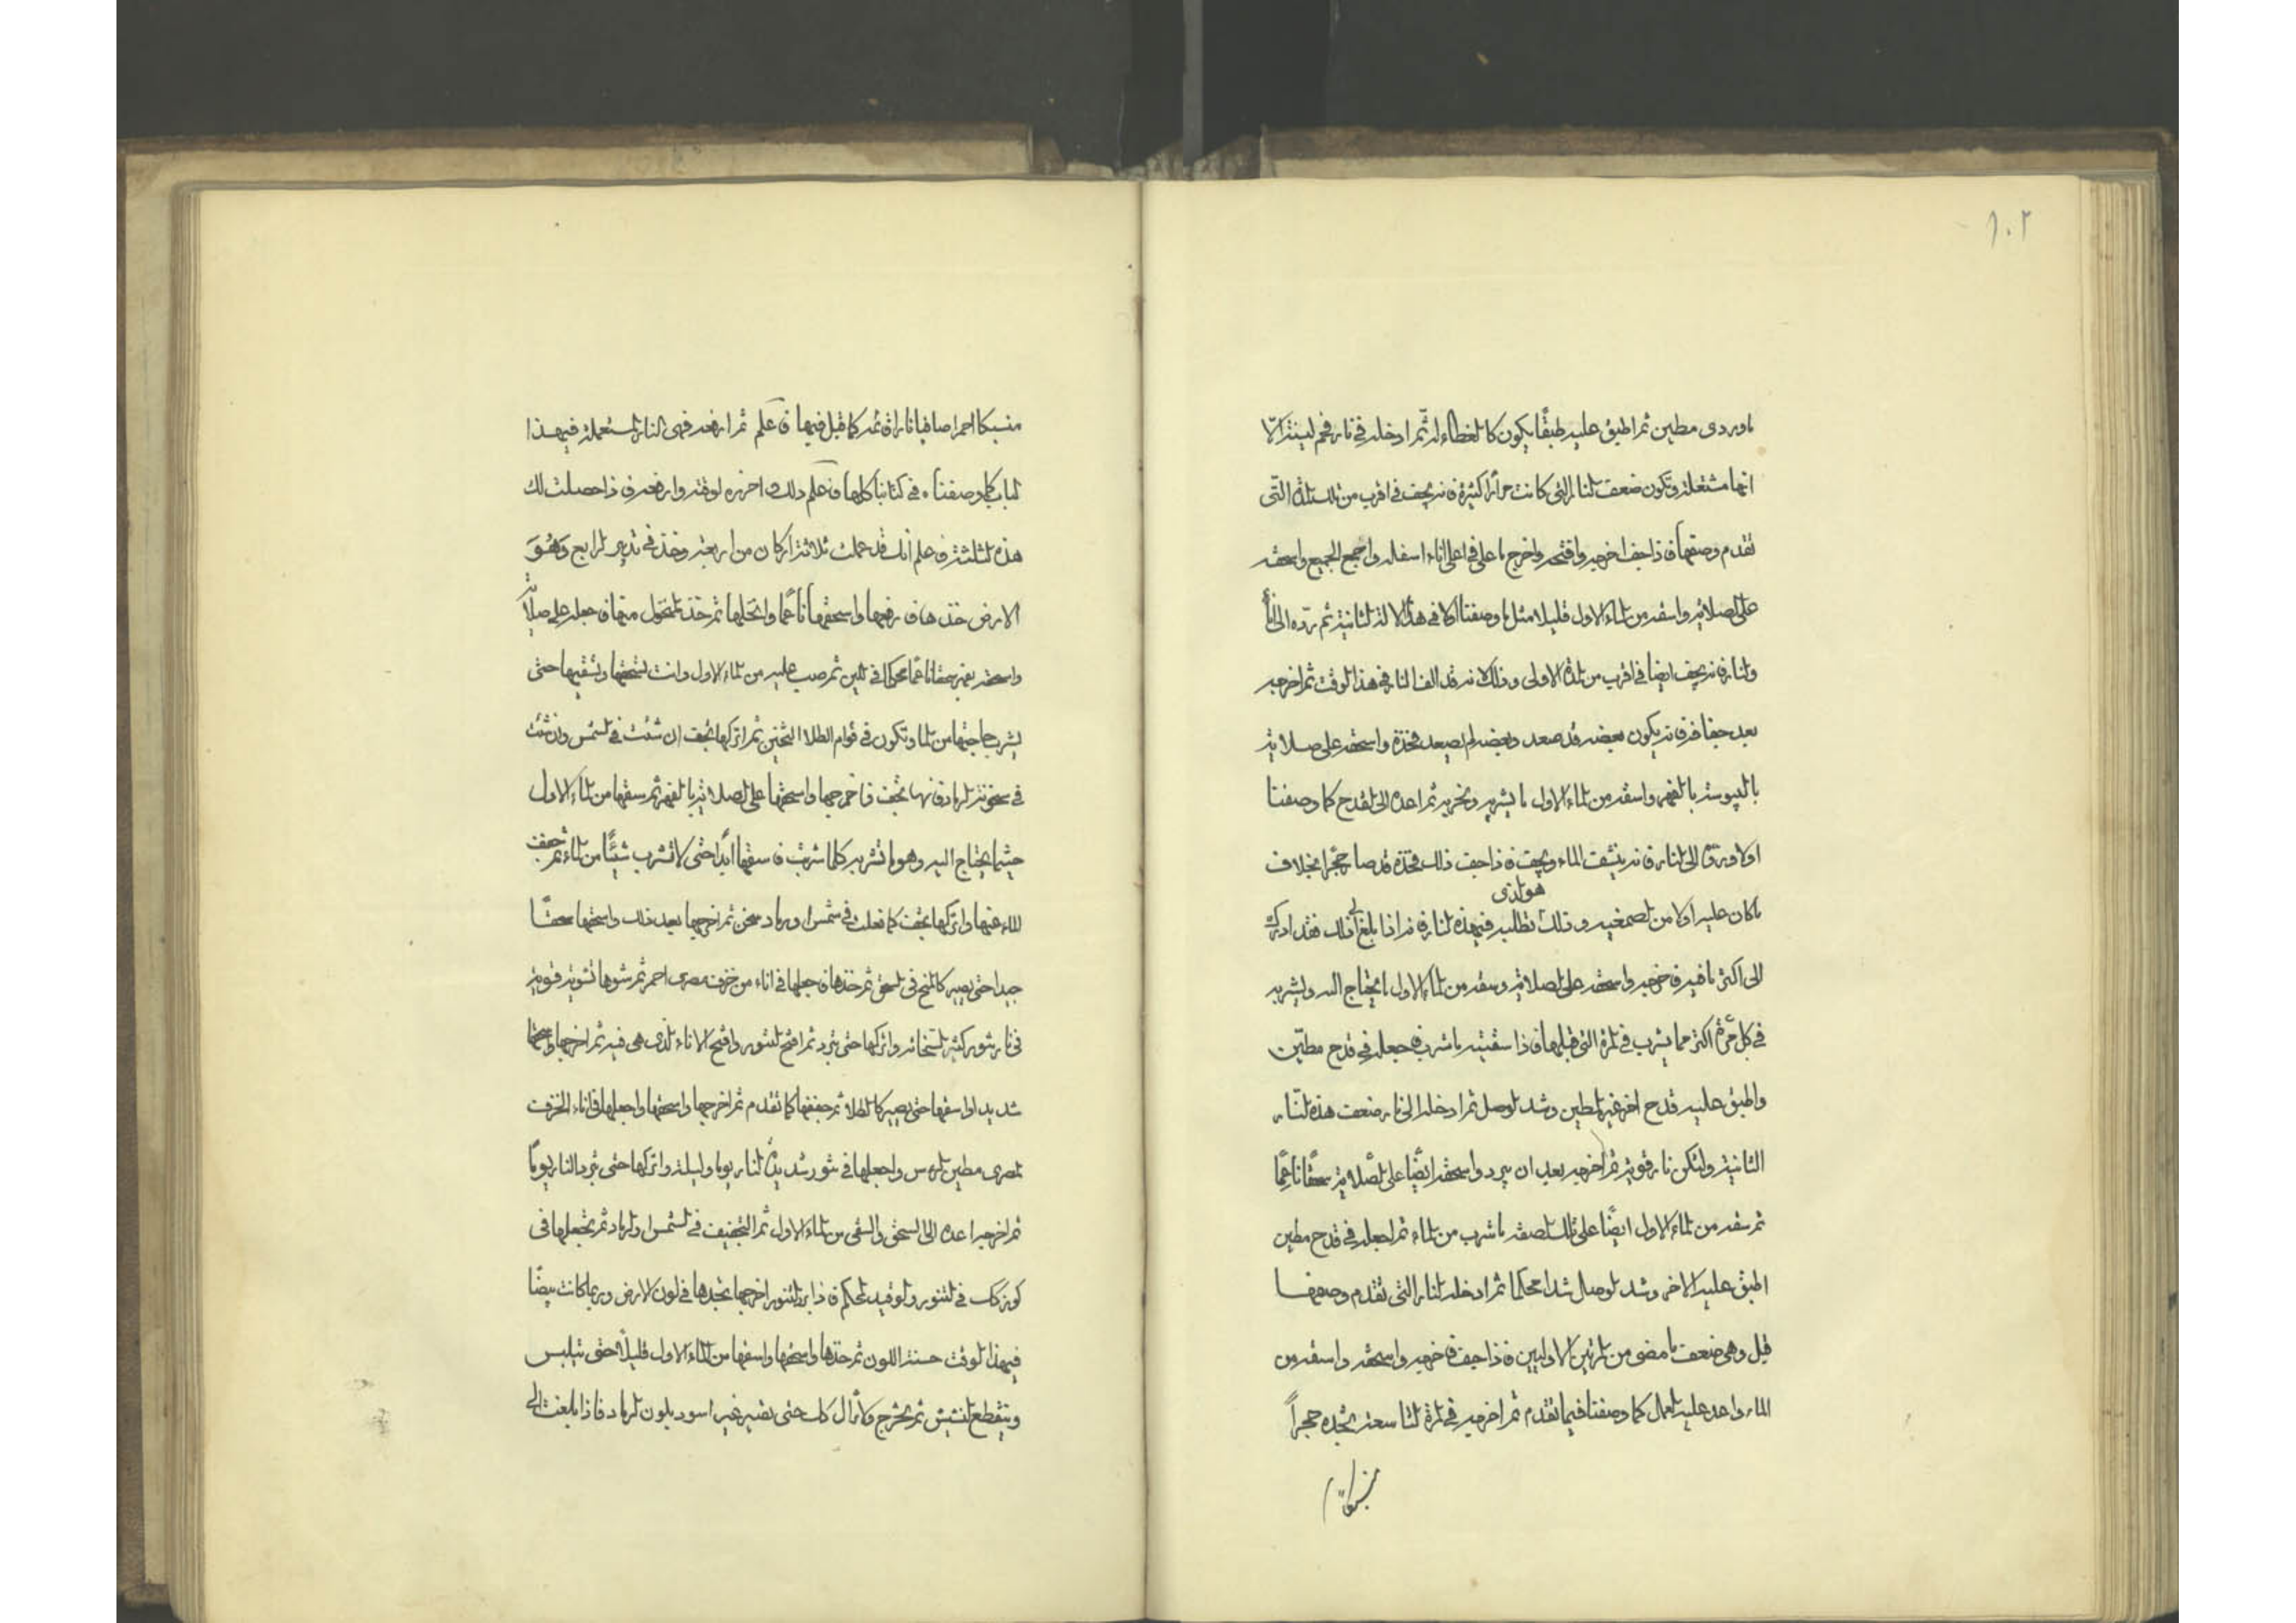 ١٠٢
ماوردى مطين ثم اطبق عليه طبقًا يكون كالغطاء له ثم ادخله فى نار فحم لينة الا
انها مشتعلة وتكون ضعف النار التى كانت مرارًا كثيرة فانه يجف فى اقرب من تلك المدة التى
تقدم وصفها فاذا جف اخرجه وافتحه واخرج ما على فى اعلى اناء اسفله واجمع الجميع واسحقه
على الصلاية واسقه من الماء الاول قليلا مثل ما وصفنا اولا فى هذا الالة الثانية ثم رده الى الاناء
والنار فانه يجف ايضا فى اقرب من المدة الاولى وذلك انه قد الف النار فى هذا الوقت ثم اخرجه
بعد جفافه فانه يكون بعضه قد صعد وبعضه لم يصعد فخذه واسحقه على صلاية
باليبوسة بالفهر واسقه من الماء الاول ما يشربه وتخربه ثم اعده الى القدح كما وصفنا
اولا ورده الى النار فانه ينشف الماء ويجف فاذا جف ذلك فتخذه قد صار حجرًا بخلاف
ما كان عليه اولا من الصمغية وذلك هو الذى تطلبه فى هذه النار فانه اذا بلغ الى ذلك فقد ادرك
الى اكثر ما فيه فاخرجه واسحقه على الصلاية وسقه من الماء الاول ما يحتاج اليه وليشربه
فى كل مرة اكثر مما يشرب فى المرة التى قبلها فاذا سقيته ما شرب فاجعله فى قدح مطين
واطبق عليه قدح اخر غير مطين وشد الوصل ثم ادخله الى نار ضعف هذه النار
الثانية ولتكن نار قوية ثم اخرجه بعد ان يبرد واسحقه ايضًا على الصلاية سحقًا ناعمًا
ثم سقه من الماء الاول ايضًا على تلك الصفة ما شرب من الماء ثم اجعله فى قدح مطين
اطبق عليه الاخر وشد الوصال شدا محكما ثم ادخله النار التى تقدم وصفها
قبل وهى ضعف ما مضى من المرتين الاوليين فاذا جف فاخرجه واسحقه واسقه من
الماء واعد عليه العمل كما وصفنا فيما تقدم ثم اخرجه فى المرة التاسعة تجده حجراً
منسبكا
منسبكا احمرا صافيا نارًا قائمة كما قيل فيها فاعلم ثم ارفعه فهى النار المستعملة فى هذا
الباب كما وصفناه فى كتابنا كلها فاعلم ذلك واحرزه لوقته وارفعه فاذا حصلت لك
هذه الثلثة فاعلم انك قد عملت ثلاثة اركان من اربعة وخذ فى تدبير الرابع وَهُوَ
الارض خذها فارضها واسحقها ناعمًا وانخلها ثم خذ المنخول منها فاجعله على صلاية
واسحقه بفهر سحقا ناعمًا محركا فى اللين ثم صب عليه من الماء الاول وانت تسحقها وتسقيها حتى
يشرب حاجتها من الماء وتكون فى قوام الطلاء الثخين ثم اتركها تجف ان شئت فى الشمس وان شئت
فى سخونة الرماد فانها تجف فاخرجها واسحقها على الصلاية بالفهر ثم سقها من الماء الاول
حيثما يحتاج اليه وهو ما تشربه كلما شربت فاسقها ابدا حتى لا تشرب شيئًا من الماء ثم جفف
الماء عنها واتركها تجف كما فعلت فى شمس او رماد سخن ثم اخرجها بعد ذلك واسحقها سحقًا
جيدا حتى يصير كالمخ فى السحق ثم خذها فاجعلها فى اناء من خزف مصرى احمر ثم شوها تشوية قوية
فى نار تنور كثير السخانة واتركها حتى تبرد ثم افتح التنور وافتح الاناء الذى هى فيه ثم اخرجها واسحقها
شديدا واسقها حتى يصير كالطلا ثم جففها كما تقدم ثم اخرجها واسحقها واجعلها فى اناء الخزف
المصرى مطين الراس واجعلها فى تنور شديد النار يوما وليلة واتركها حتى تبرد النار يومًا
ثم اخرجه اعده الى السحق والسقى من الماء الاول ثم التجفيف فى الشمس او الرماد ثم تجعلها فى
كوزك فى التنور والوقيد المحكم فاذا برد التنور اخرجها تجدها فى لون الارض وربما كانت بيضًا
فى هذا الوقت حسنة اللون ثم خذها واسحقها واسقها من الماء الاول قليلاً حتى تيبس
وينقطع النشيش ثم تخرج ولا تزال كذلك حتى يصير غير اسود بلون الرماد فاذا بلغت الى